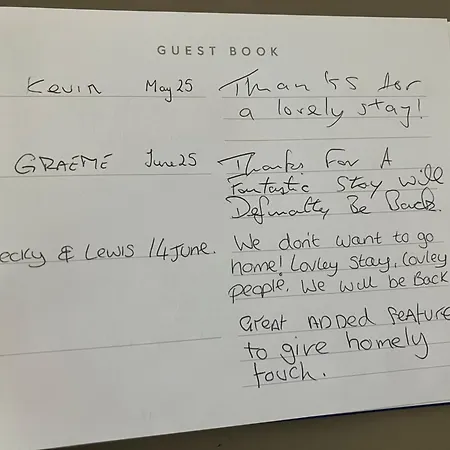 GUEST BOOK
Kevin May 25 Thanks for
a lovely stay!
GRAEME June 25 Thanks For A
Fantastic Stay will
Definatley Be Back.
ecky & Lewis 14 June. We don't want to go
home! Lovley stay, Lovley
people. We will be Back
Great ADDED FEATURE
to give homely
touch.